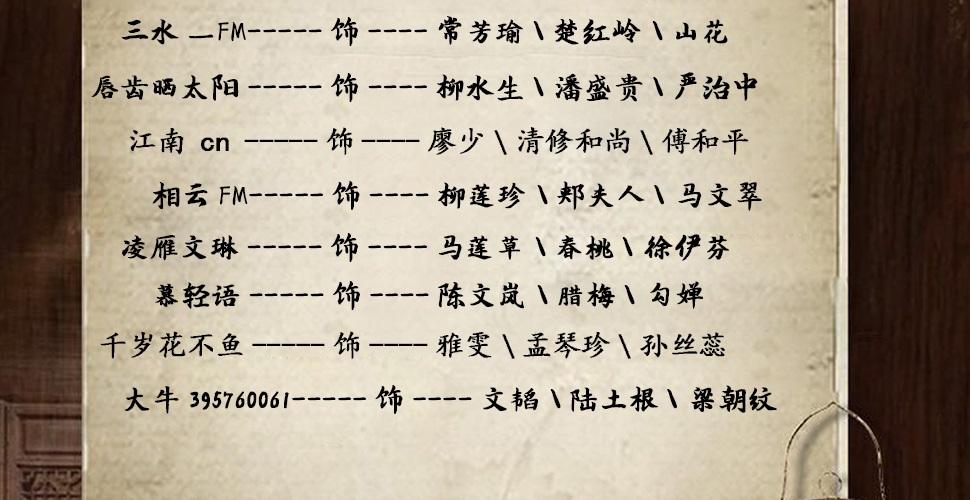 三水 _FM----- 饰 ---- 常芳瑜 \ 楚红岭 \ 山花
唇齿晒太阳 ----- 饰 ---- 柳水生 \ 潘盛贵 \ 严治中
江南 cn ----- 饰 ---- 廖少 \ 清修和尚 \ 傅和平
相云 FM----- 饰 ---- 柳莲珍 \ 郏夫人 \ 马文翠
凌雁文琳 ----- 饰 ---- 马莲草 \ 春桃 \ 徐伊芬
慕轻语 ----- 饰 ---- 陈文岚 \ 腊梅 \ 勾婵
千岁花不鱼 ----- 饰 ---- 雅雯 \ 孟琴珍 \ 孙丝蕊
大牛 395760061----- 饰 ---- 文韬 \ 陆土根 \ 梁朝纹